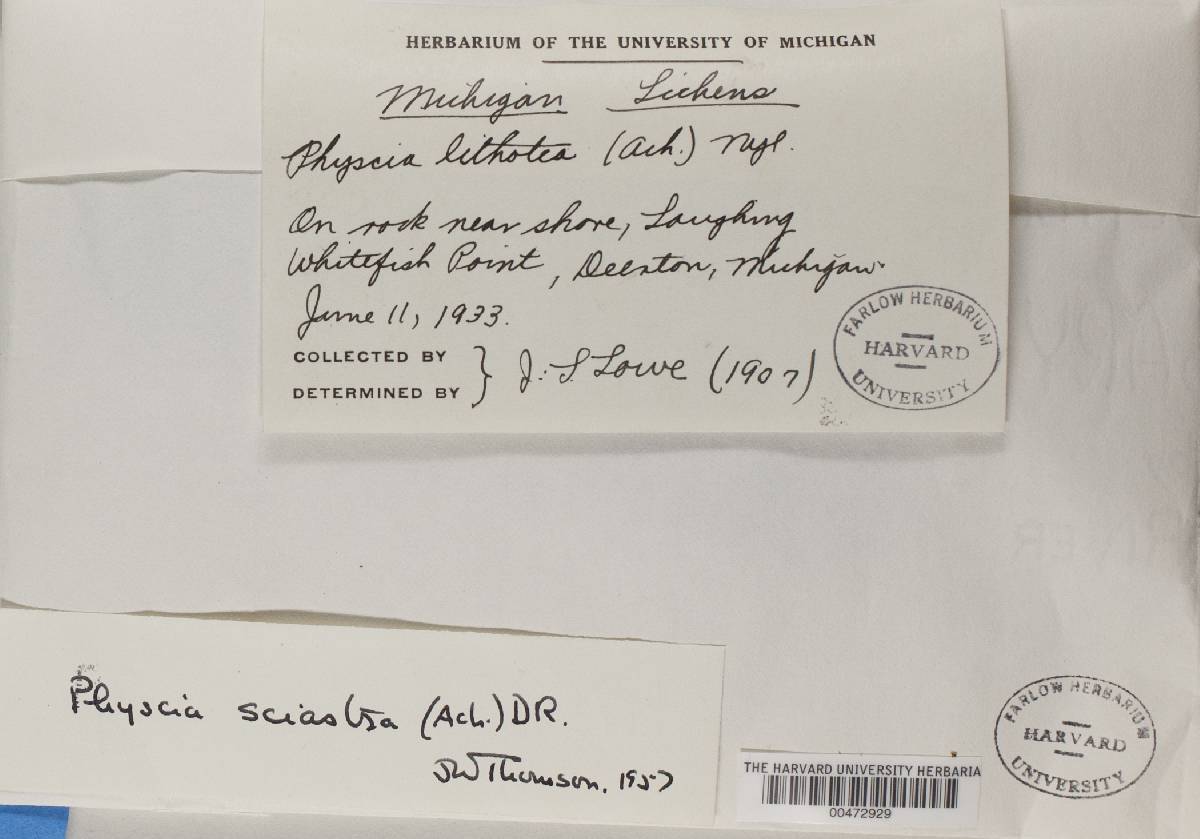 HERBARIUM OF THE UNIVERSITY OF MICHIGAN
Michigan Lichens
Physcia lithotea (Ach.) Nyl.
On rock near shore, Laughing
Whitefish Point, Deerton, Michigan
June 11, 1933.
COLLECTED BY
DETERMINED BY
J. L. Lowe (1907)
FARLOW HERBARIUM
HARVARD
UNIVERSITY
Physcia sciastra (Ach.) DR.
JW Thomson, 1957
THE HARVARD UNIVERSITY HERBARIA
00472929
FARLOW HERBARIUM
HARVARD
UNIVERSITY